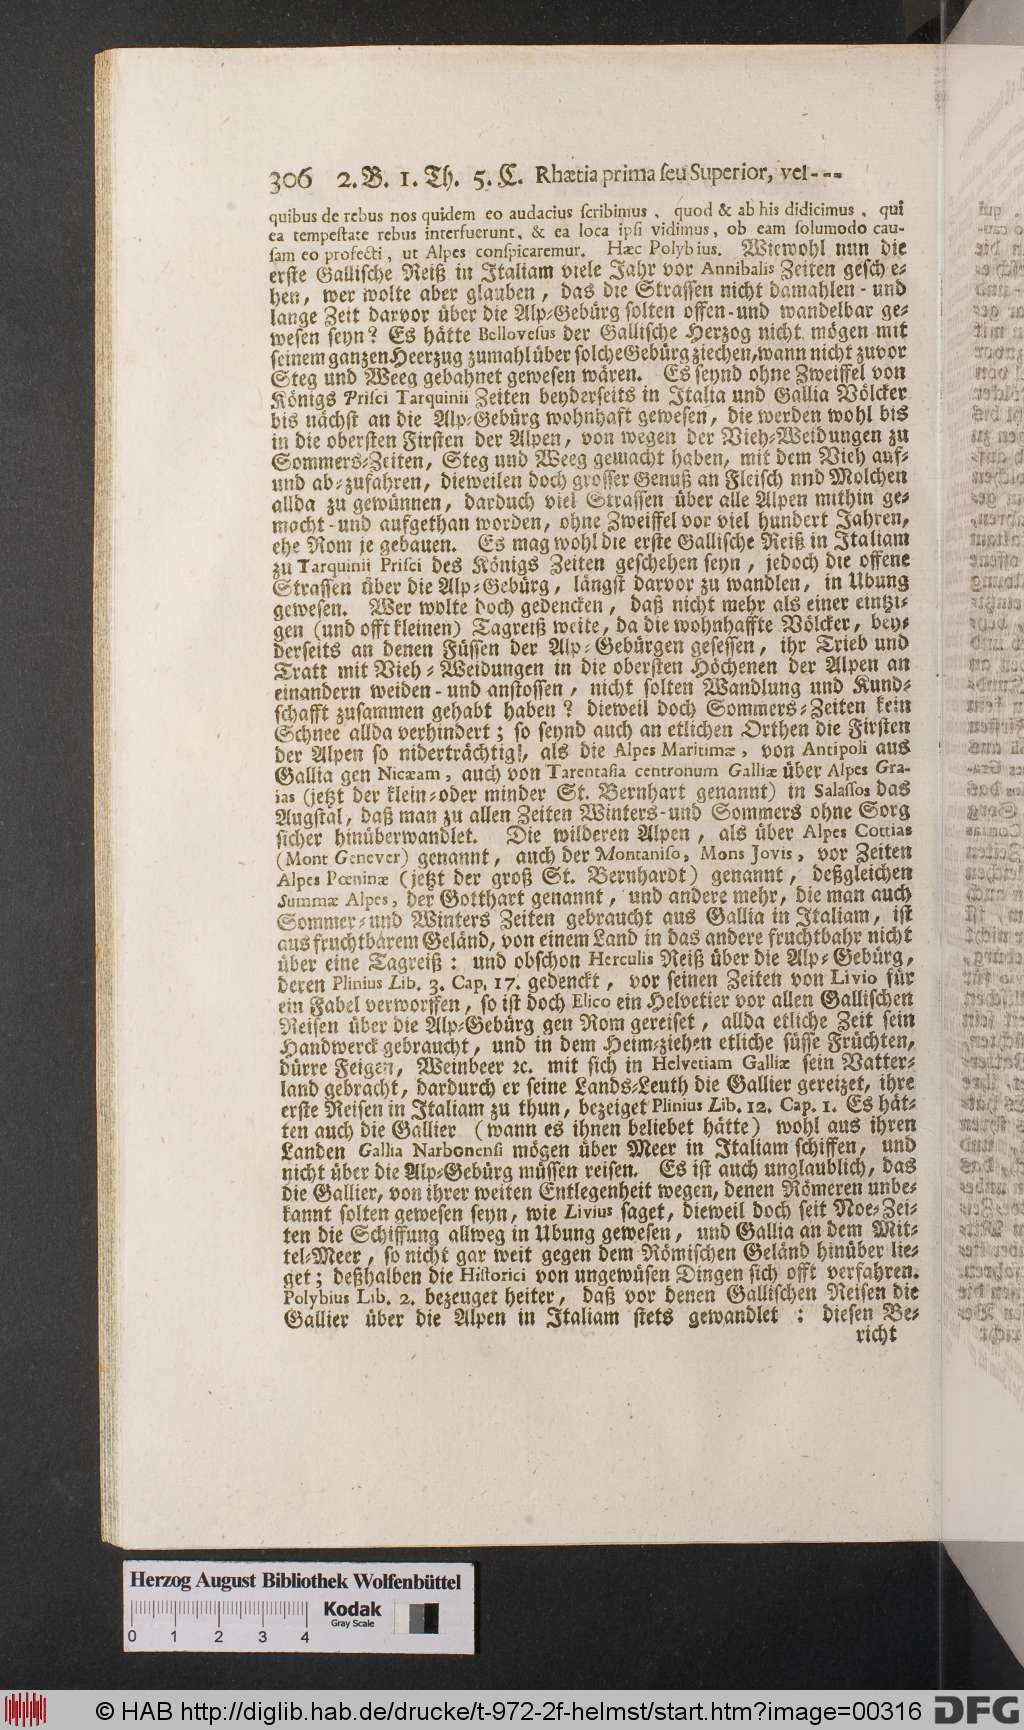 306 2. B. 1. Th. 5. C. Rhætia prima seu Superior, vel---
quibus de rebus nos quidem eo audacius scribimus, quod & ab his didicimus, qui
ea tempestate rebus interfuerunt, & ea loca ipsi vidimus, ob eam solumodo cau-
sam eo profecti, ut Alpes conspicaremur. Hæc Polybius. Wiewohl nun die
erste Gallische Reiß in Italiam viele Jahr vor Annibalis Zeiten gesche-
hen, wer wolte aber glauben, das die Strassen nicht damahlen- und
lange Zeit darvor über die Alp-Gebürg solten offen- und wandelbar ge-
wesen seyn? Es hätte Bellovesus der Gallische Herzog nicht mögen mit
seinem ganzen Heerzug zumahl über solche Gebürg ziechen, wann nicht zuvor
Steg und Weeg gebahnet gewesen wären. Es seynd ohne Zweiffel von
Königs Prisci Tarquinii Zeiten beyderseits in Italia und Gallia Völcker
bis nächst an die Alp-Gebürg wohnhaft gewesen, die werden wohl bis
in die obersten Firsten der Alpen, von wegen der Vieh-Weidungen zu
Sommers-Zeiten, Steg und Weeg gemacht haben, mit dem Vieh auf-
und ab-zufahren, dieweilen doch grosser Genuß an Fleisch und Molchen
allda zu gewünnen, darduch viel Strassen über alle Alpen mithin ge-
macht- und aufgethan worden, ohne Zweiffel vor viel hundert Jahren,
ehe Rom je gebauen. Es mag wohl die erste Gallische Reiß in Italiam
zu Tarquinii Prisci des Königs Zeiten geschehen seyn, jedoch die offene
Strassen über die Alp-Gebürg, längst darvor zu wandlen, in Ubung
gewesen. Wer wolte doch gedencken, daß nicht mehr als einer eintzi-
gen (und offt kleinen) Tagreiß weite, da die wohnhaffte Völcker, bey-
derseits an denen Füssen der Alp-Gebürgen gesessen, ihr Trieb und
Tratt mit Vieh-Weidungen in die obersten Höchenen der Alpen an
einandern weiden- und anstossen, nicht solten Wandlung und Kund-
schafft zusammen gehabt haben? dieweil doch Sommers-Zeiten kein
Schnee allda verhindert; so seynd auch an etlichen Orthen die Firsten
der Alpen so niderträchtig, als die Alpes Maritimæ, von Antipoli aus
Gallia gen Nicæam, auch von Tarentasia centronum Galliæ über Alpes Gra-
ias (jetzt der klein- oder minder St. Bernhart genannt) in Salassos das
Augstal, daß man zu allen Zeiten Winters- und Sommers ohne Sorg
sicher hinüberwandlet. Die wilderen Alpen, als über Alpes Cottias
(Mont Genever) genannt, auch der Montaniso, Mons Jovis, vor Zeiten
Alpes Pœninæ (jetzt der groß St. Bernhardt) genannt, deßgleichen
Summæ Alpes, der Gotthart genannt, und andere mehr, die man auch
Sommer- und Winters Zeiten gebraucht aus Gallia in Italiam, ist
aus fruchtbarem Geländ, von einem Land in das andere fruchtbahr nicht
über eine Tagreiß: und obschon Herculis Reiß über die Alp-Gebürg,
deren Plinius Lib. 3. Cap. 17. gedenckt, vor seinen Zeiten von Livio für
ein Fabel verworffen, so ist doch Elico ein Helvetier vor allen Gallischen
Reisen über die Alp-Gebürg gen Rom gereiset, allda etliche Zeit sein
Handwerck gebraucht, und in dem Heim-ziehen etliche süsse Früchten,
dürre Feigen, Weinbeer ꝛc. mit sich in Helvetiam Galliæ sein Vatter-
land gebracht, dardurch er seine Lands-Leuth die Gallier gereizet, ihre
erste Reisen in Italiam zu thun, bezeiget Plinius Lib. 12. Cap. 1. Es hät-
ten auch die Gallier (wann es ihnen beliebet hätte) wohl aus ihren
Landen Gallia Narbonensi mögen über Meer in Italiam schiffen, und
nicht über die Alp-Gebürg müssen reisen. Es ist auch unglaublich, das
die Gallier, von ihrer weiten Entlegenheit wegen, denen Römeren unbe-
kannt solten gewesen seyn, wie Livius saget, dieweil doch seit Noe-Zei-
ten die Schiffung allweg in Ubung gewesen, und Gallia an dem Mit-
tel-Meer, so nicht gar weit gegen dem Römischen Geländ hinüber lie-
get; deßhalben die Historici von ungewüsen Dingen sich offt verfahren.
Polybius Lib. 2. bezeuget heiter, daß vor denen Gallischen Reisen die
Gallier über die Alpen in Italiam stets gewandlet: diesen Be-
richt
Herzog August Bibliothek Wolfenbüttel
Kodak
Gray Scale
0 1 2 3 4
© HAB http://diglib.hab.de/drucke/t-972-2f-helmst/start.htm?image=00316
DFG